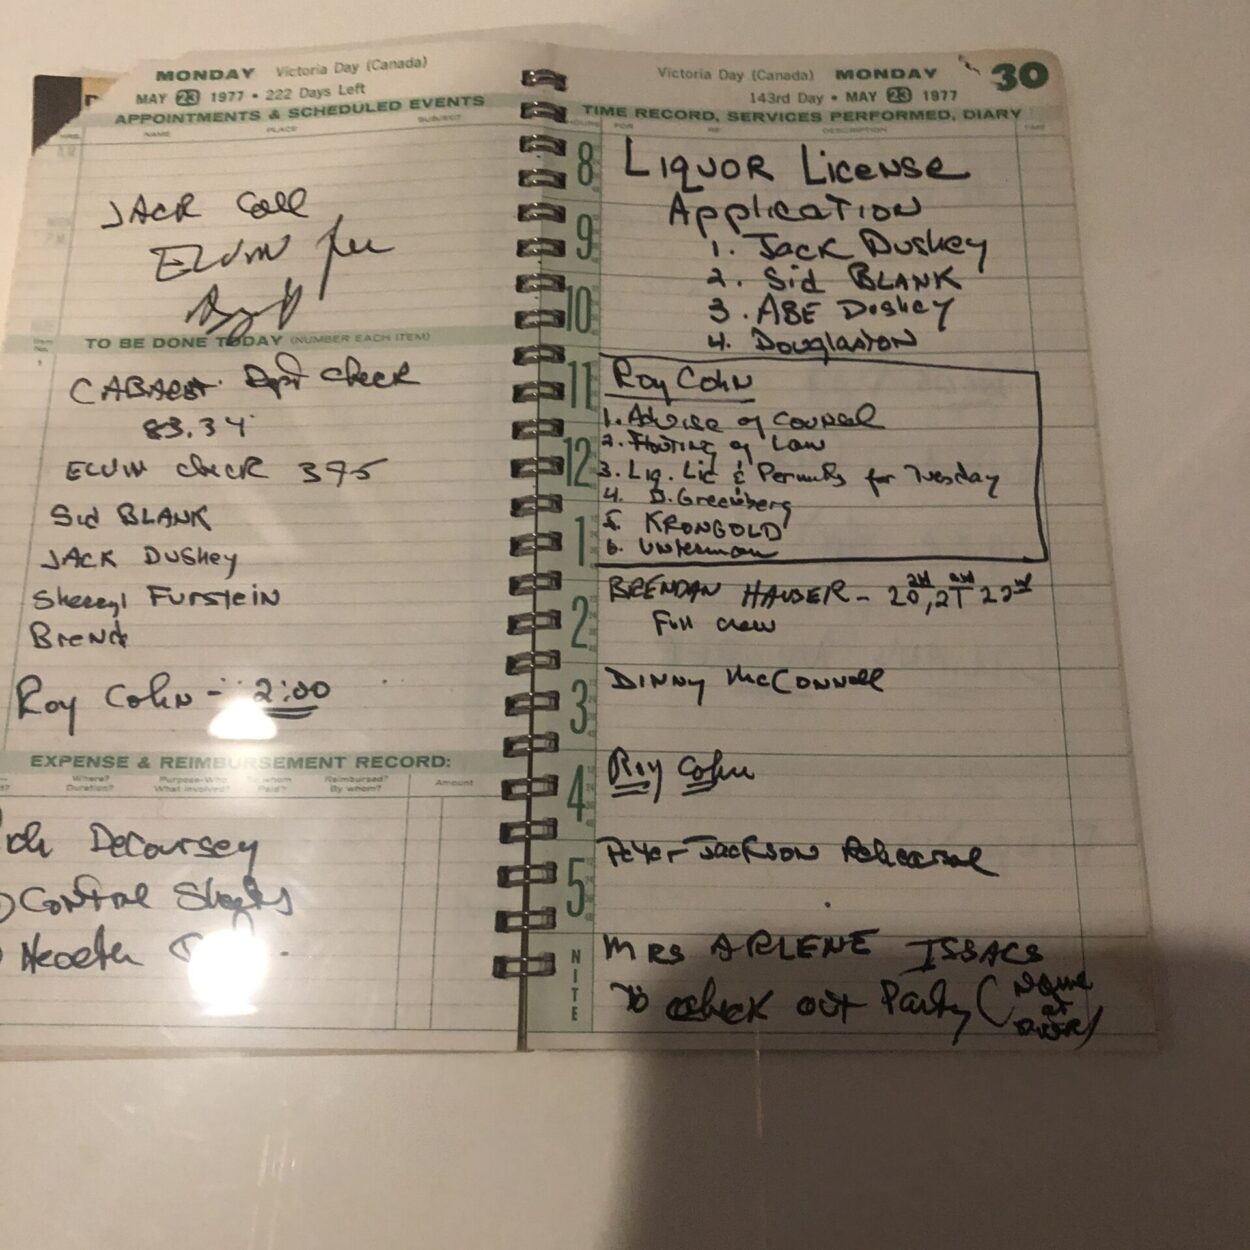 MONDAY Victoria Day (Canada)
MAY 23 1977 • 222 Days Left
APPOINTMENTS & SCHEDULED EVENTS
HRS. NAME PLACE SUBJECT
JACK Call
ELVIN
TO BE DONE TODAY (NUMBER EACH ITEM)
CABARET Dept check
83.34
ELVIN check 395
Sid BLANK
JACK DUSHEY
Sheryl FURSTEIN
Brend
Roy Cohn - 2:00
EXPENSE & REIMBURSEMENT RECORD:
Where? Purpose-Who To whom Reimbursed? Amount
Duration? What involved? Paid? By whom?
DeCoursey
Control Sheets
Health
Victoria Day (Canada) MONDAY 30
143rd Day • MAY 23 1977
TIME RECORD, SERVICES PERFORMED, DIARY
FOR RE DESCRIPTION TIME
8 LIQUOR LICENSE
APPLICATION
9 1. Jack Dushey
2. Sid BLANK
10 3. ABE Dushey
4. Douglaston
11 Roy Cohn
1. Advise of Counsel
2. Flouting of Law
12 3. Liq. Lic & Permits for Tuesday
4. D. Greenberg
5. KRONGOLD
1 6. Unterman
BRENDAN HAUSER - 20, 21 22nd
2 Full crew
DINNY McCONNELL
3
Roy Cohn
4
Peter Jackson Rehearsal
5
NITE
MRS ARLENE ISSACS
To check out Party (Name
at
DOOR)